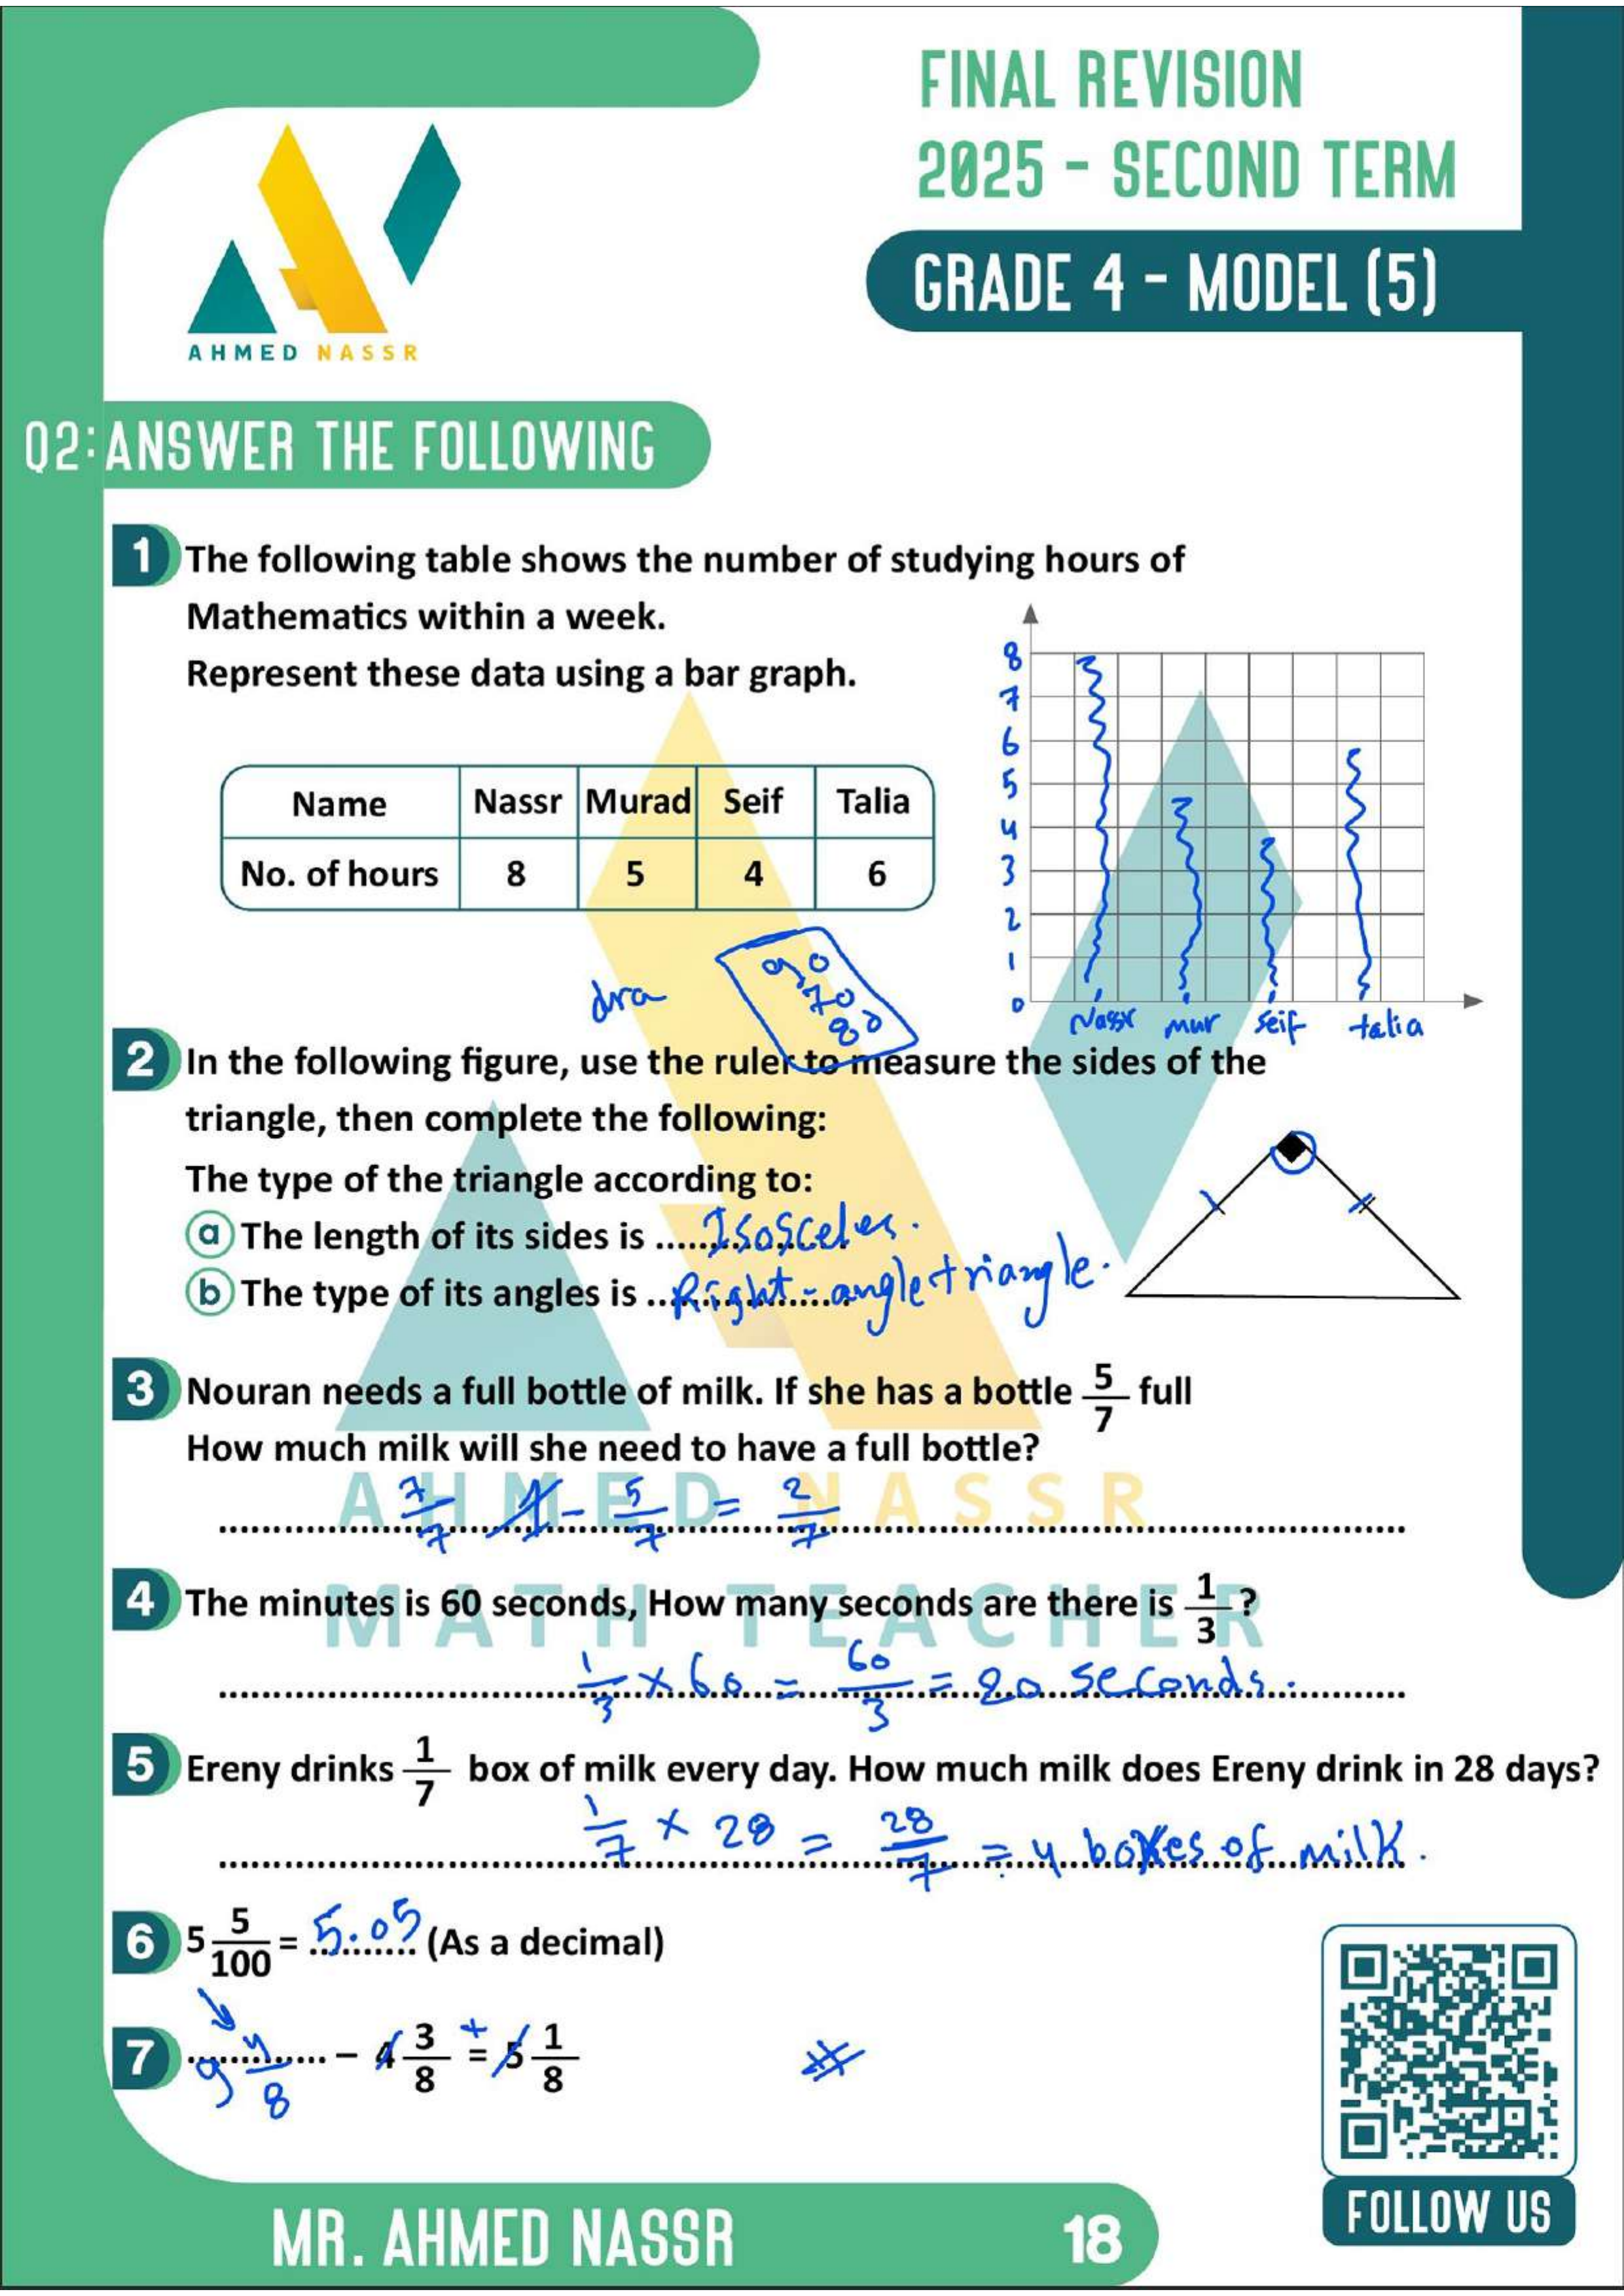 FINAL REVISION
2025 - SECOND TERM
GRADE 4 - MODEL (5)
AHMED NASSR
Q2: ANSWER THE FOLLOWING
1 The following table shows the number of studying hours of
Mathematics within a week.
Represent these data using a bar graph.
8
7
6
5
4
3
2
1
0
Nassr mur seif talia
Name Nassr Murad Seif Talia
No. of hours 8 5 4 6
dra
90
70
80
2 In the following figure, use the ruler to measure the sides of the
triangle, then complete the following:
The type of the triangle according to:
a The length of its sides is ....Isosceles.
b The type of its angles is ...Right-angle triangle.
3 Nouran needs a full bottle of milk. If she has a bottle 5/7 full
How much milk will she need to have a full bottle?
AHMED NASSR
7/7 1 - 5/7 = 2/7
4 The minutes is 60 seconds, How many seconds are there is 1/3 ?
MATH TEACHER
1/3 × 60 = 60/3 = 20 seconds.
5 Ereny drinks 1/7 box of milk every day. How much milk does Ereny drink in 28 days?
1/7 × 28 = 28/7 = 4 boxes of milk.
6 5 5/100 = 5.05 (As a decimal)
7 9 4/8 - 4 3/8 + = 5 1/8
MR. AHMED NASSR
18
FOLLOW US